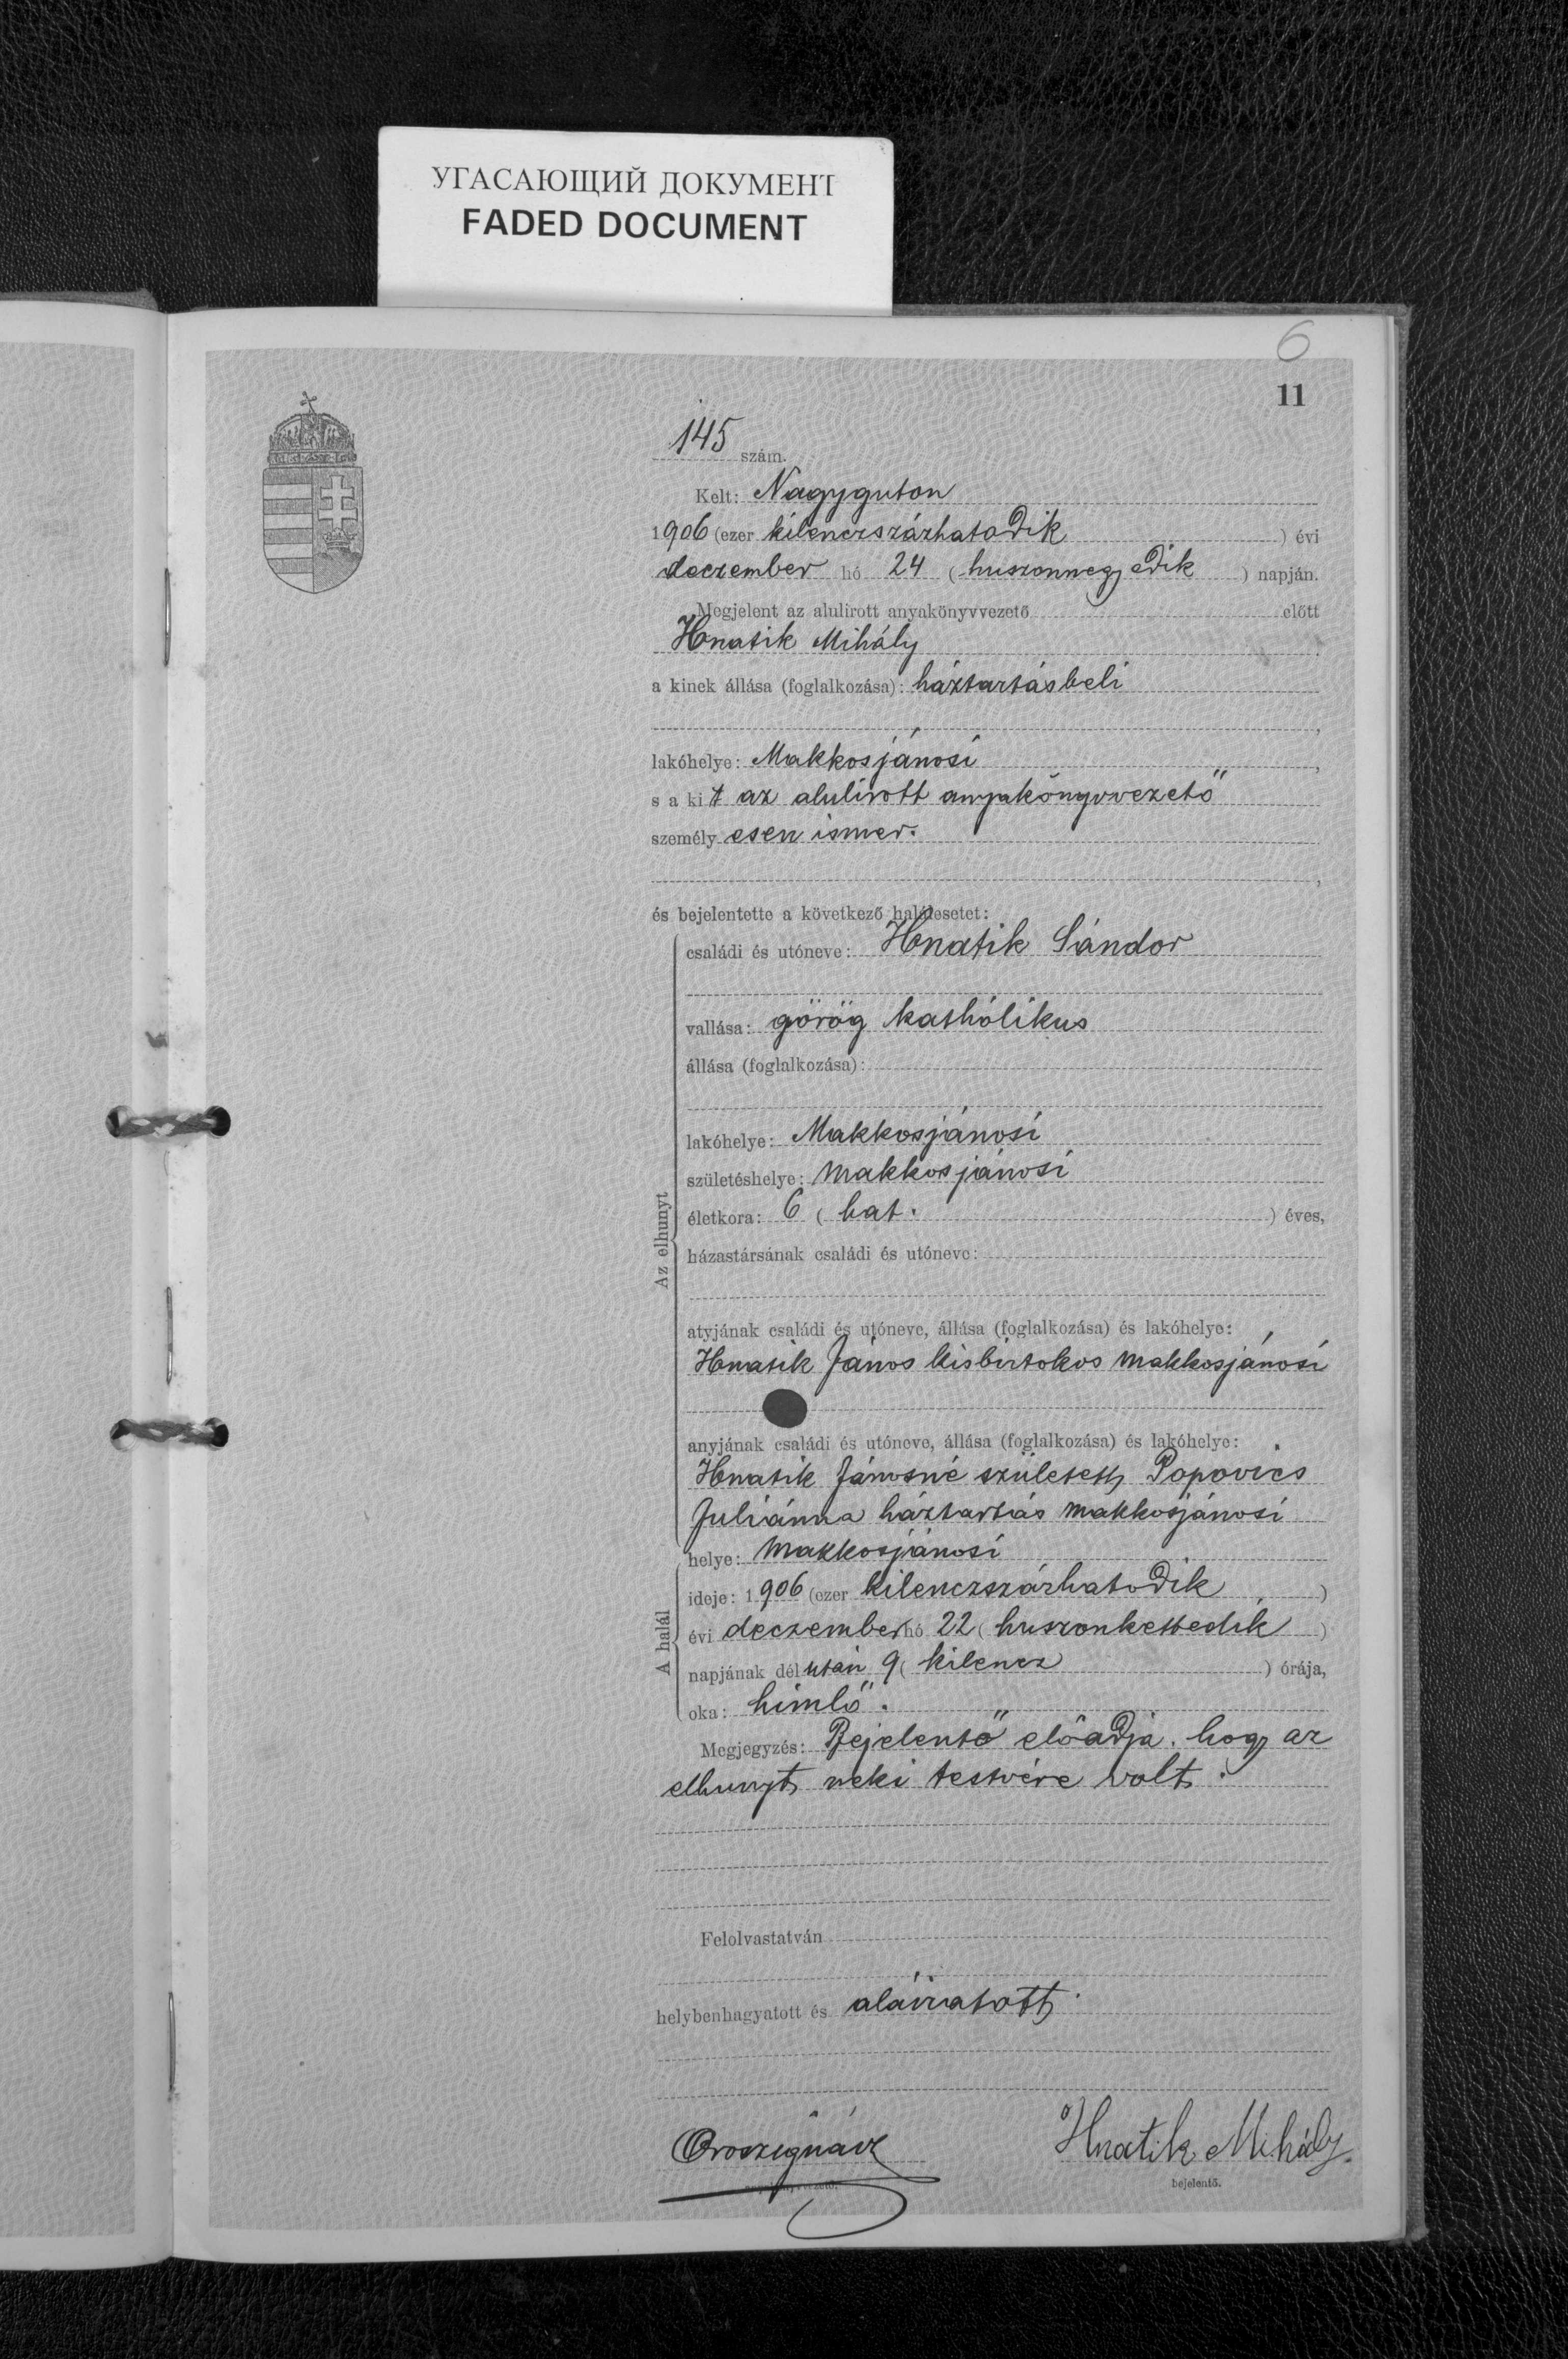 УГАСАЮЩИЙ ДОКУМЕНТ
FADED DOCUMENT
6
11
145 szám.
Kelt: Nagyguton
1906 (ezer kilenczszázhatodik ) évi
deczember hó 24 (huszonnegyedik ) napján.
Megjelent az alulirott anyakönyvvezető előtt
Hnatik Mihály
a kinek állása (foglalkozása): háztartásbeli
,
lakóhelye: Makkosjánosi ,
s a kit az alulirott anyakönyvvezető
személyesen ismer.
,
és bejelentette a következő halálesetet:
Az elhunyt
családi és utóneve: Hnatik Sándor
vallása: görög katholikus
állása (foglalkozása):
lakóhelye: Makkosjánosi
születéshelye: Makkosjánosi
életkora: 6 (hat. ) éves,
házastársának családi és utóneve:
atyjának családi és utóneve, állása (foglalkozása) és lakóhelye:
Hnatik János kisbirtokos Makkosjánosi
anyjának családi és utóneve, állása (foglalkozása) és lakóhelye:
Hnatik Jánosné született Popovics
Juliánna háztartás Makkosjánosi
A halál
helye: Makkosjánosi
ideje: 1906 (ezer kilenczszázhatodik )
évi deczember hó 22 (huszonkettedik )
napjának délután 9 (kilencz ) órája,
oka: himlő.
Megjegyzés: Bejelentő előadja, hogy az
elhunyt neki testvére volt.
Felolvastatván
helybenhagyatott és aláiratott.
Orosz Ignácz Hnatik Mihály.
bejelentő.